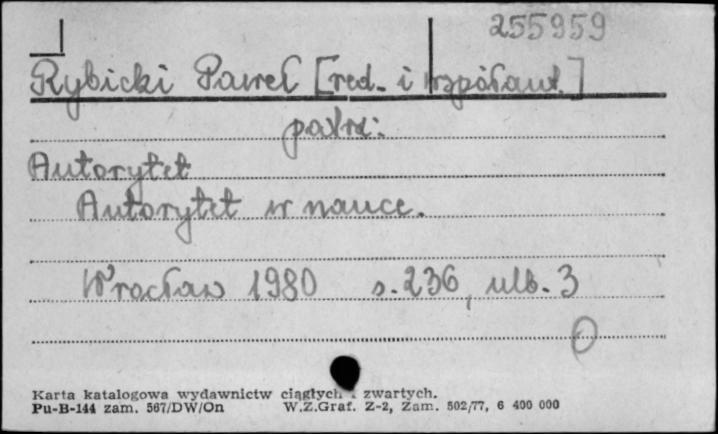 255959
Rybicki Paweł [red. i współaut.]
patrz:
Autorytet
Autorytet w nauce.
Wrocław 1980 s. 236, ulb. 3
Karta katalogowa wydawnictw ciągłych i zwartych.
Pu-B-144 zam. 567/DW/On W.Z.Graf. Z-2, Zam. 502/77, 6 400 000